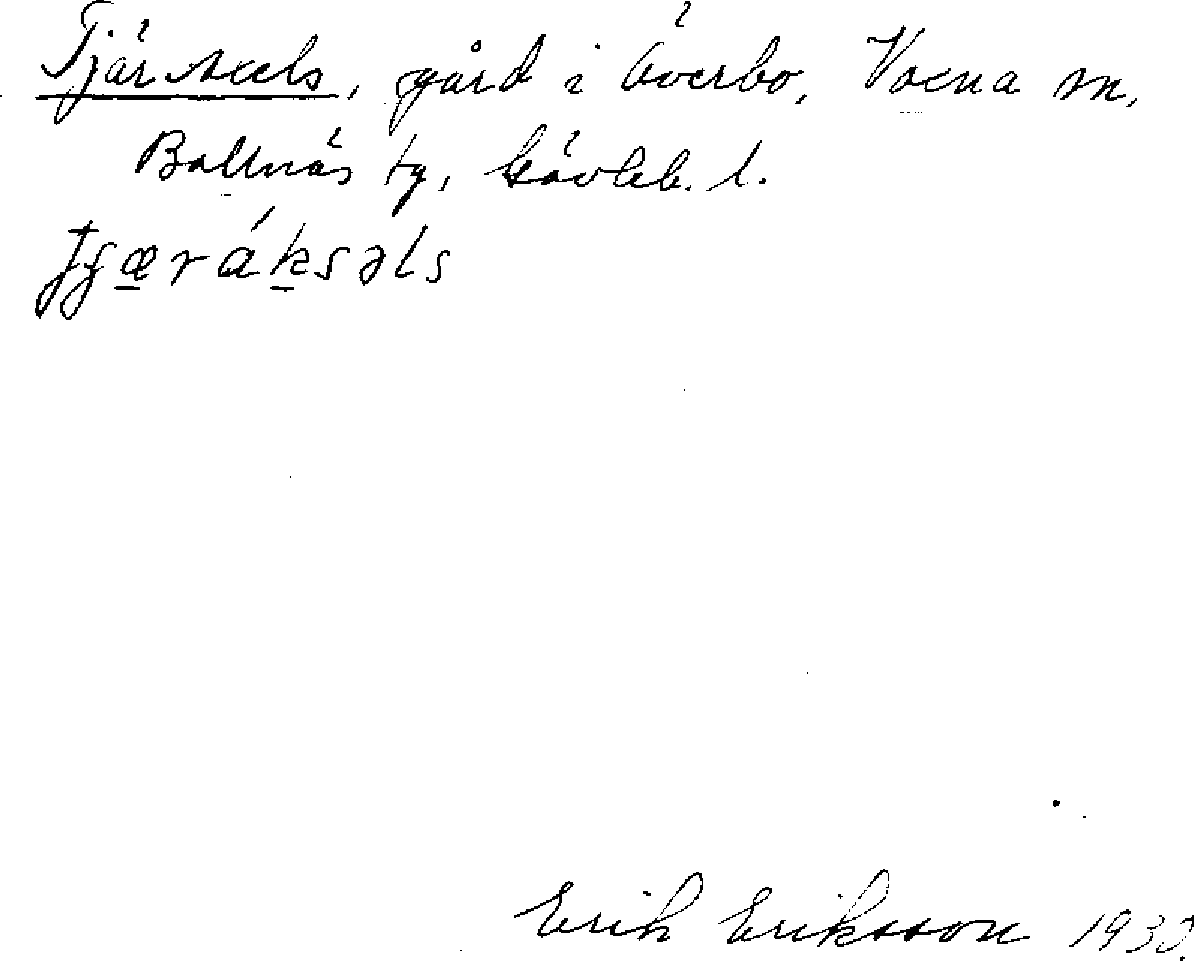 Tjär Axels, gård i Överbo, Voxna sn,
Bollnäs tg, Gävleb. l.
tʃæ̱ráḵsəls
Erik Eriksson 1930.